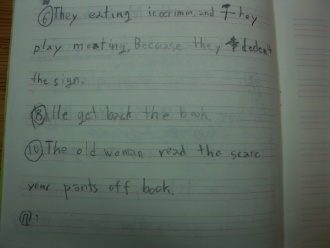 ⑥They eating icecrimm, and They
play meating. Because they dedent
the sign.
⑧He get back the book
⑩The old woman read the scare
your pants off book.
⑪